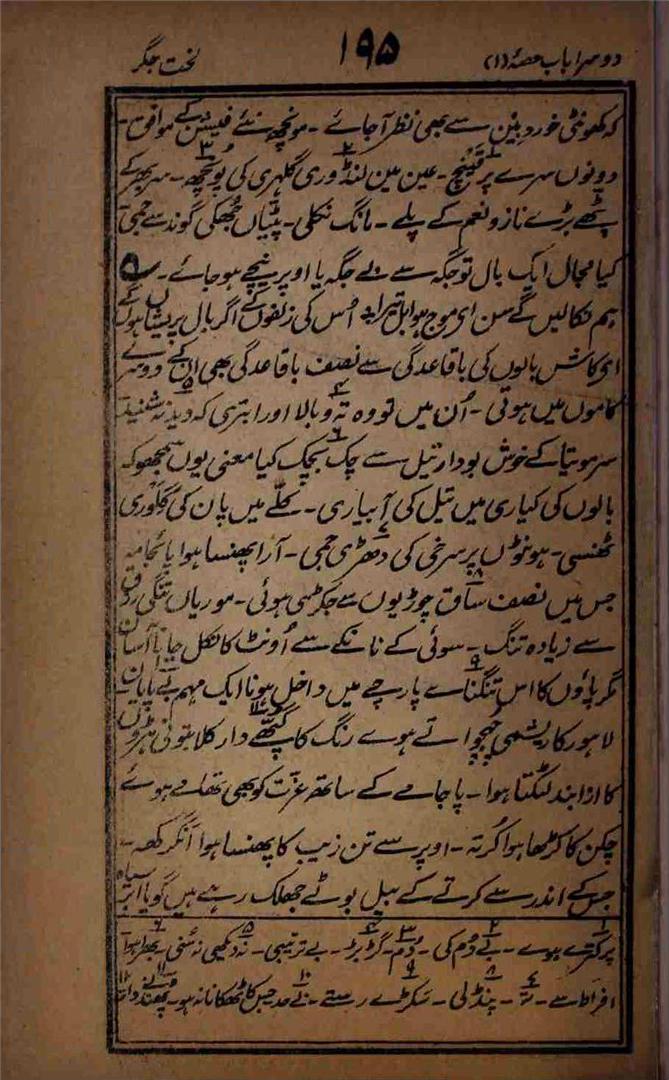 دوسرا باب حصۂ (۱) ۱۹۵ لخت جگر
کہ کھونٹی خوردبین سے بھی نظر آجائے ۔ مونچھ نئے فیشن کے موافق ۔
دونوں سرے پر قینچ ۔ عین مین لنڈوری گلہری کی پونچھ ۔ سر بھر کے
پٹھے بڑے ناز و نعم کے پلے ۔ مانگ نکلی ۔ پٹیاں جھکی گوند سے جمی
کیا مجال ایک بال تو جگہ سے بے جگہ یا اوپر نیچے ہوجائے ۔
ہم نکالیں گے سن ای موج ہوا بل تیرا اُس کی زلفوں کے اگر بال پریشاں ہوں گے
ای کاش بالوں کی باقاعدگی سے نصف باقاعدگی بھی ان کے دوسرے
کاموں میں ہوتی ۔ اُن میں تو وہ تہ و بالا اور ابتری کہ دید نہ شنید
سر موتیا کے خوش بودار تیل سے چک بچک کیا معنی یوں سمجھو کہ
بالوں کی کیاری میں تیل کی آبیاری ۔ کلّے میں پان کی گلوری
ٹھنسی ۔ ہونٹوں پر سرخی کی دھڑی جمی ۔ آڑا پھنسا ہوا پائجامہ
جس میں نصف ساق چوڑیوں سے جکڑی ہوئی ۔ موریاں تنگی رزق
سے زیادہ تنگ ۔ سوئی کے ناکے سے اُونٹ کا نکل جانا آسان
مگر پاؤں کا اس تنگنائے پارچے میں داخل ہونا ایک مہم بے پایاں ۔
لاہور کا ریشمی چُچواتے ہوے رنگ کا گپھے دار کلابتونی
کا ازاربند لٹکتا ہوا ۔ پاجامے کے ساتھ عزت کو بھی تھامے ہوئے
چکن کا کڑھا ہوا کُرتہ ۔ اوپر سے تن زیب کا پھنسا ہوا انگرکھہ ۔
جس کے اندر سے کرتے کے بیل بوٹے جھلک رہے ہیں گویا ابر سیاہ
۱ پر کترے ہوے ۔ ۲ بے دُم کی ۔ ۳ دُم ۔ ۴ گڑبڑ ۔ بے ترتیبی ۔ ۵ نہ دیکھی نہ سُنی ۔ ۶ بھرا ہوا
افراط سے ۔ ۷ تہ ۔ ۸ پنڈلی ۔ ۹ سکڑے رستے ۔ ۱۰ بے حد جس کا ٹھکانا نہ ہو ۔ ۱۲ پھندنے دار